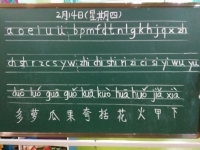 2月14日(星期四)
a o e i u ü b p m f d t n l g k h j q x zh
ch sh r z c s y w zhi chi shi ri zi ci si yi wu yu
duō luó guā guǒ kuā kuò huā huǒ jiǎ xià
多 萝 瓜 果 夸 括 花 火 甲 下